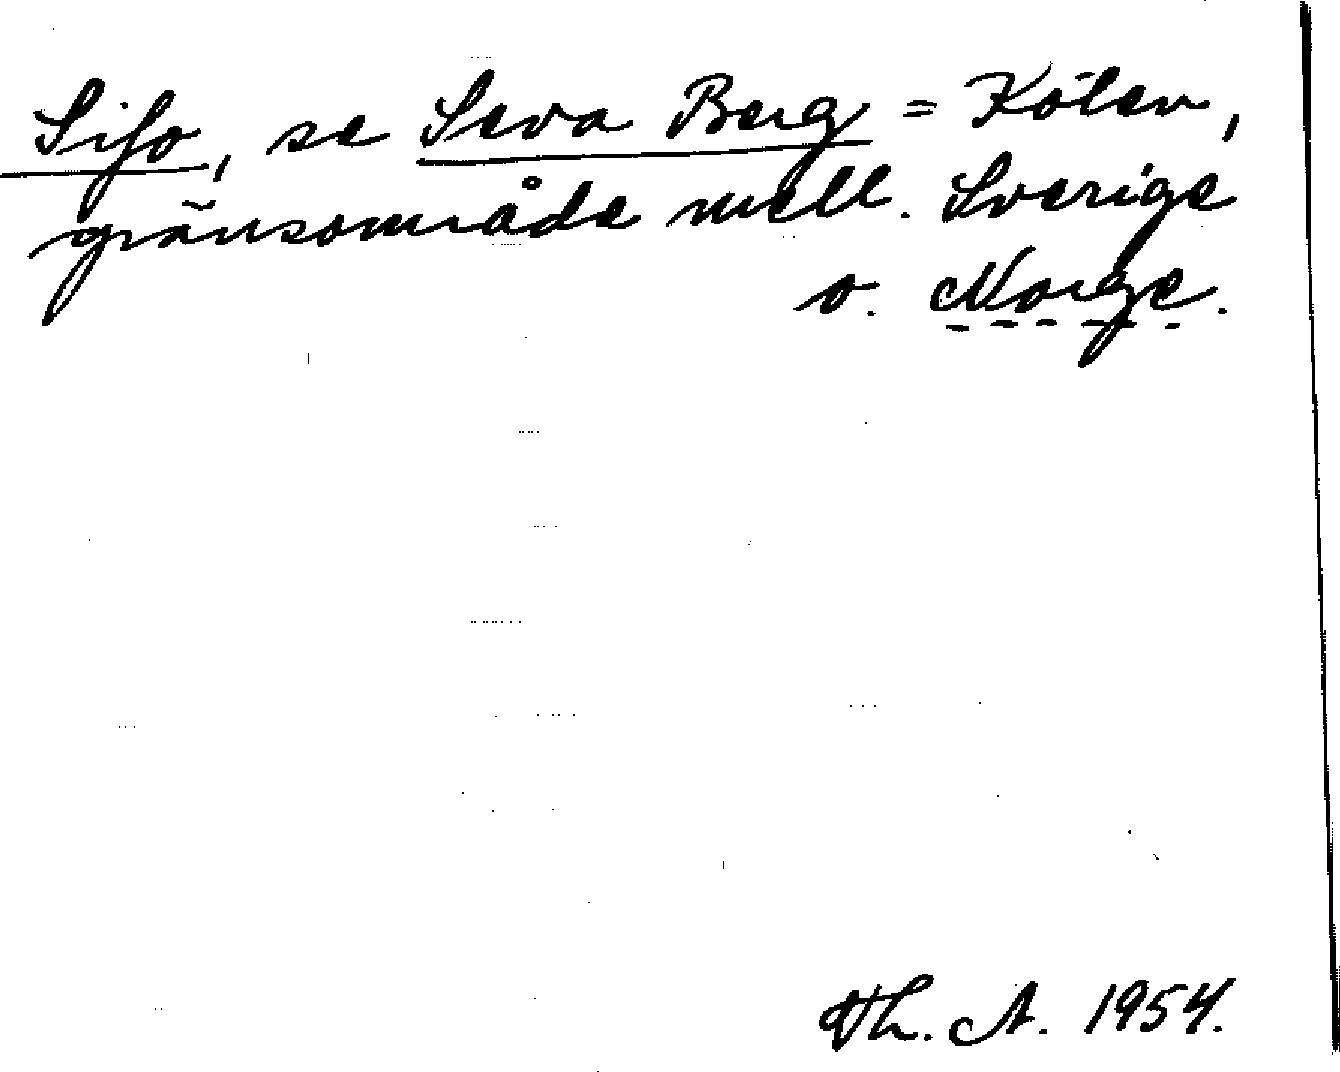 Sifo, se Seva Berg = Kölen,
gränsområde mell. Sverige
o. Norge.
Th. A. 1954.